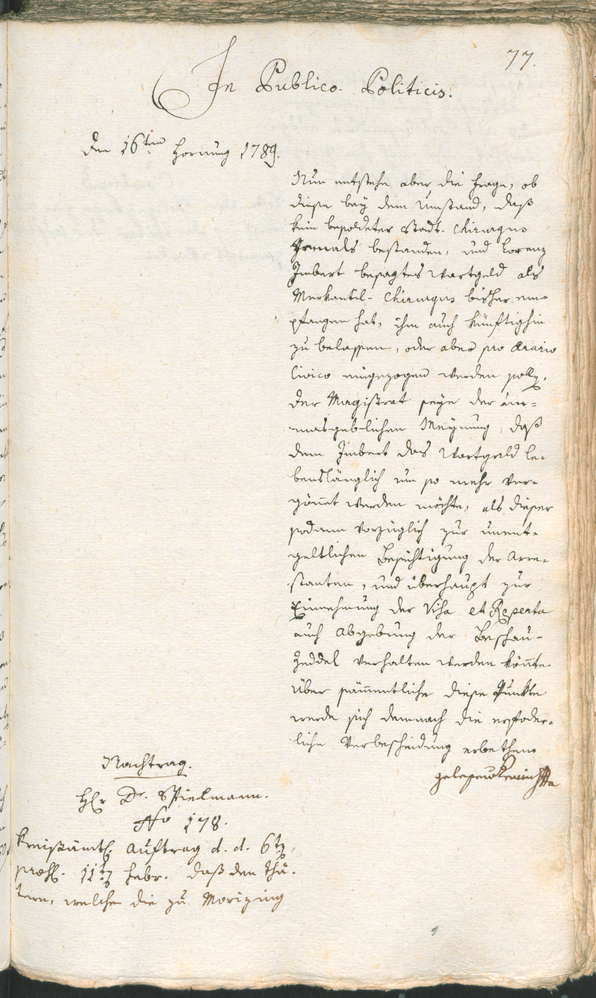 77.
In Publico Politicis.
Den 16ten Hornung 1789.
Nun entstehe aber die Frage, ob
diese bey dem Umstand, daß
kein besoldeter Stadt-Chirurgus
jemals bestanden, und Lorenz
Jmbert besagtes Wartgeld als
Merkantil-Chirurgus bisher em-
pfangen hat, ihm auch künftighin
zu belassen, oder aber pro Aerario
Civico eingezogen werden solle.
Der Magistrat seye der un-
masgeblichen Meynung, daß
dem Jmbert das Wartgeld le-
benslänglich um so mehr ver-
gönnt werden möchte, als dieser
sodann vorzüglich zur unent-
geltlichen Besichtigung der Arre-
stanten, und überhaupt zur
Einnehmung der Visa et Reperta
auch Abgebung der Beschau-
Zeddel verhalten werden könnte.
Über sämmentliche diese Punkte
werde sich demnach die erforder-
liche Verbescheidung erbethen
Nachtrag.
Hr Dr. Spielmann.
No 178.
Kreisämtl. Auftrag d. d. 6t
praes. 11t Febr. daß den Thä-
tern, welche die zu Morizing